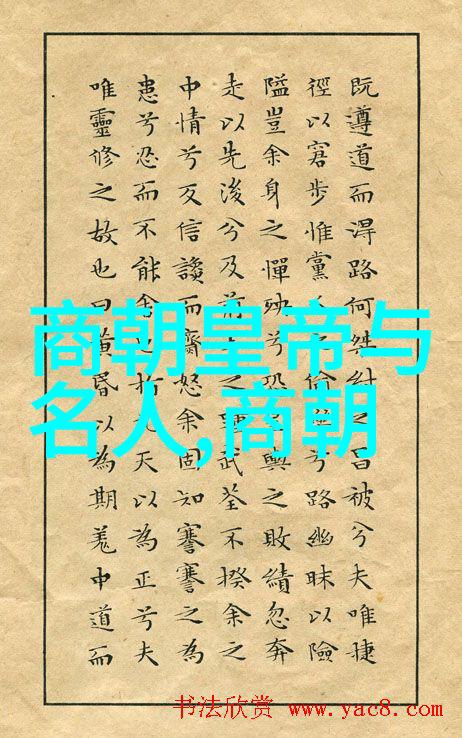 既遵道而淂路何桀紂之昌被兮夫唯捷
徑以窘步惟黨之偷兮路幽昧以險
隘豈余身之憚殃兮恐輿之敗績忽奔
走以先後兮及前之踵武荃不揆余之
中情兮反信讒而齋怒余固知謇謇之為
患兮忍而不能舍也指九天以為正兮夫
唯靈修之故也曰黃昏以為期羌中道而
商朝皇帝与
名人,商朝
书法欣赏 www.yac8.com